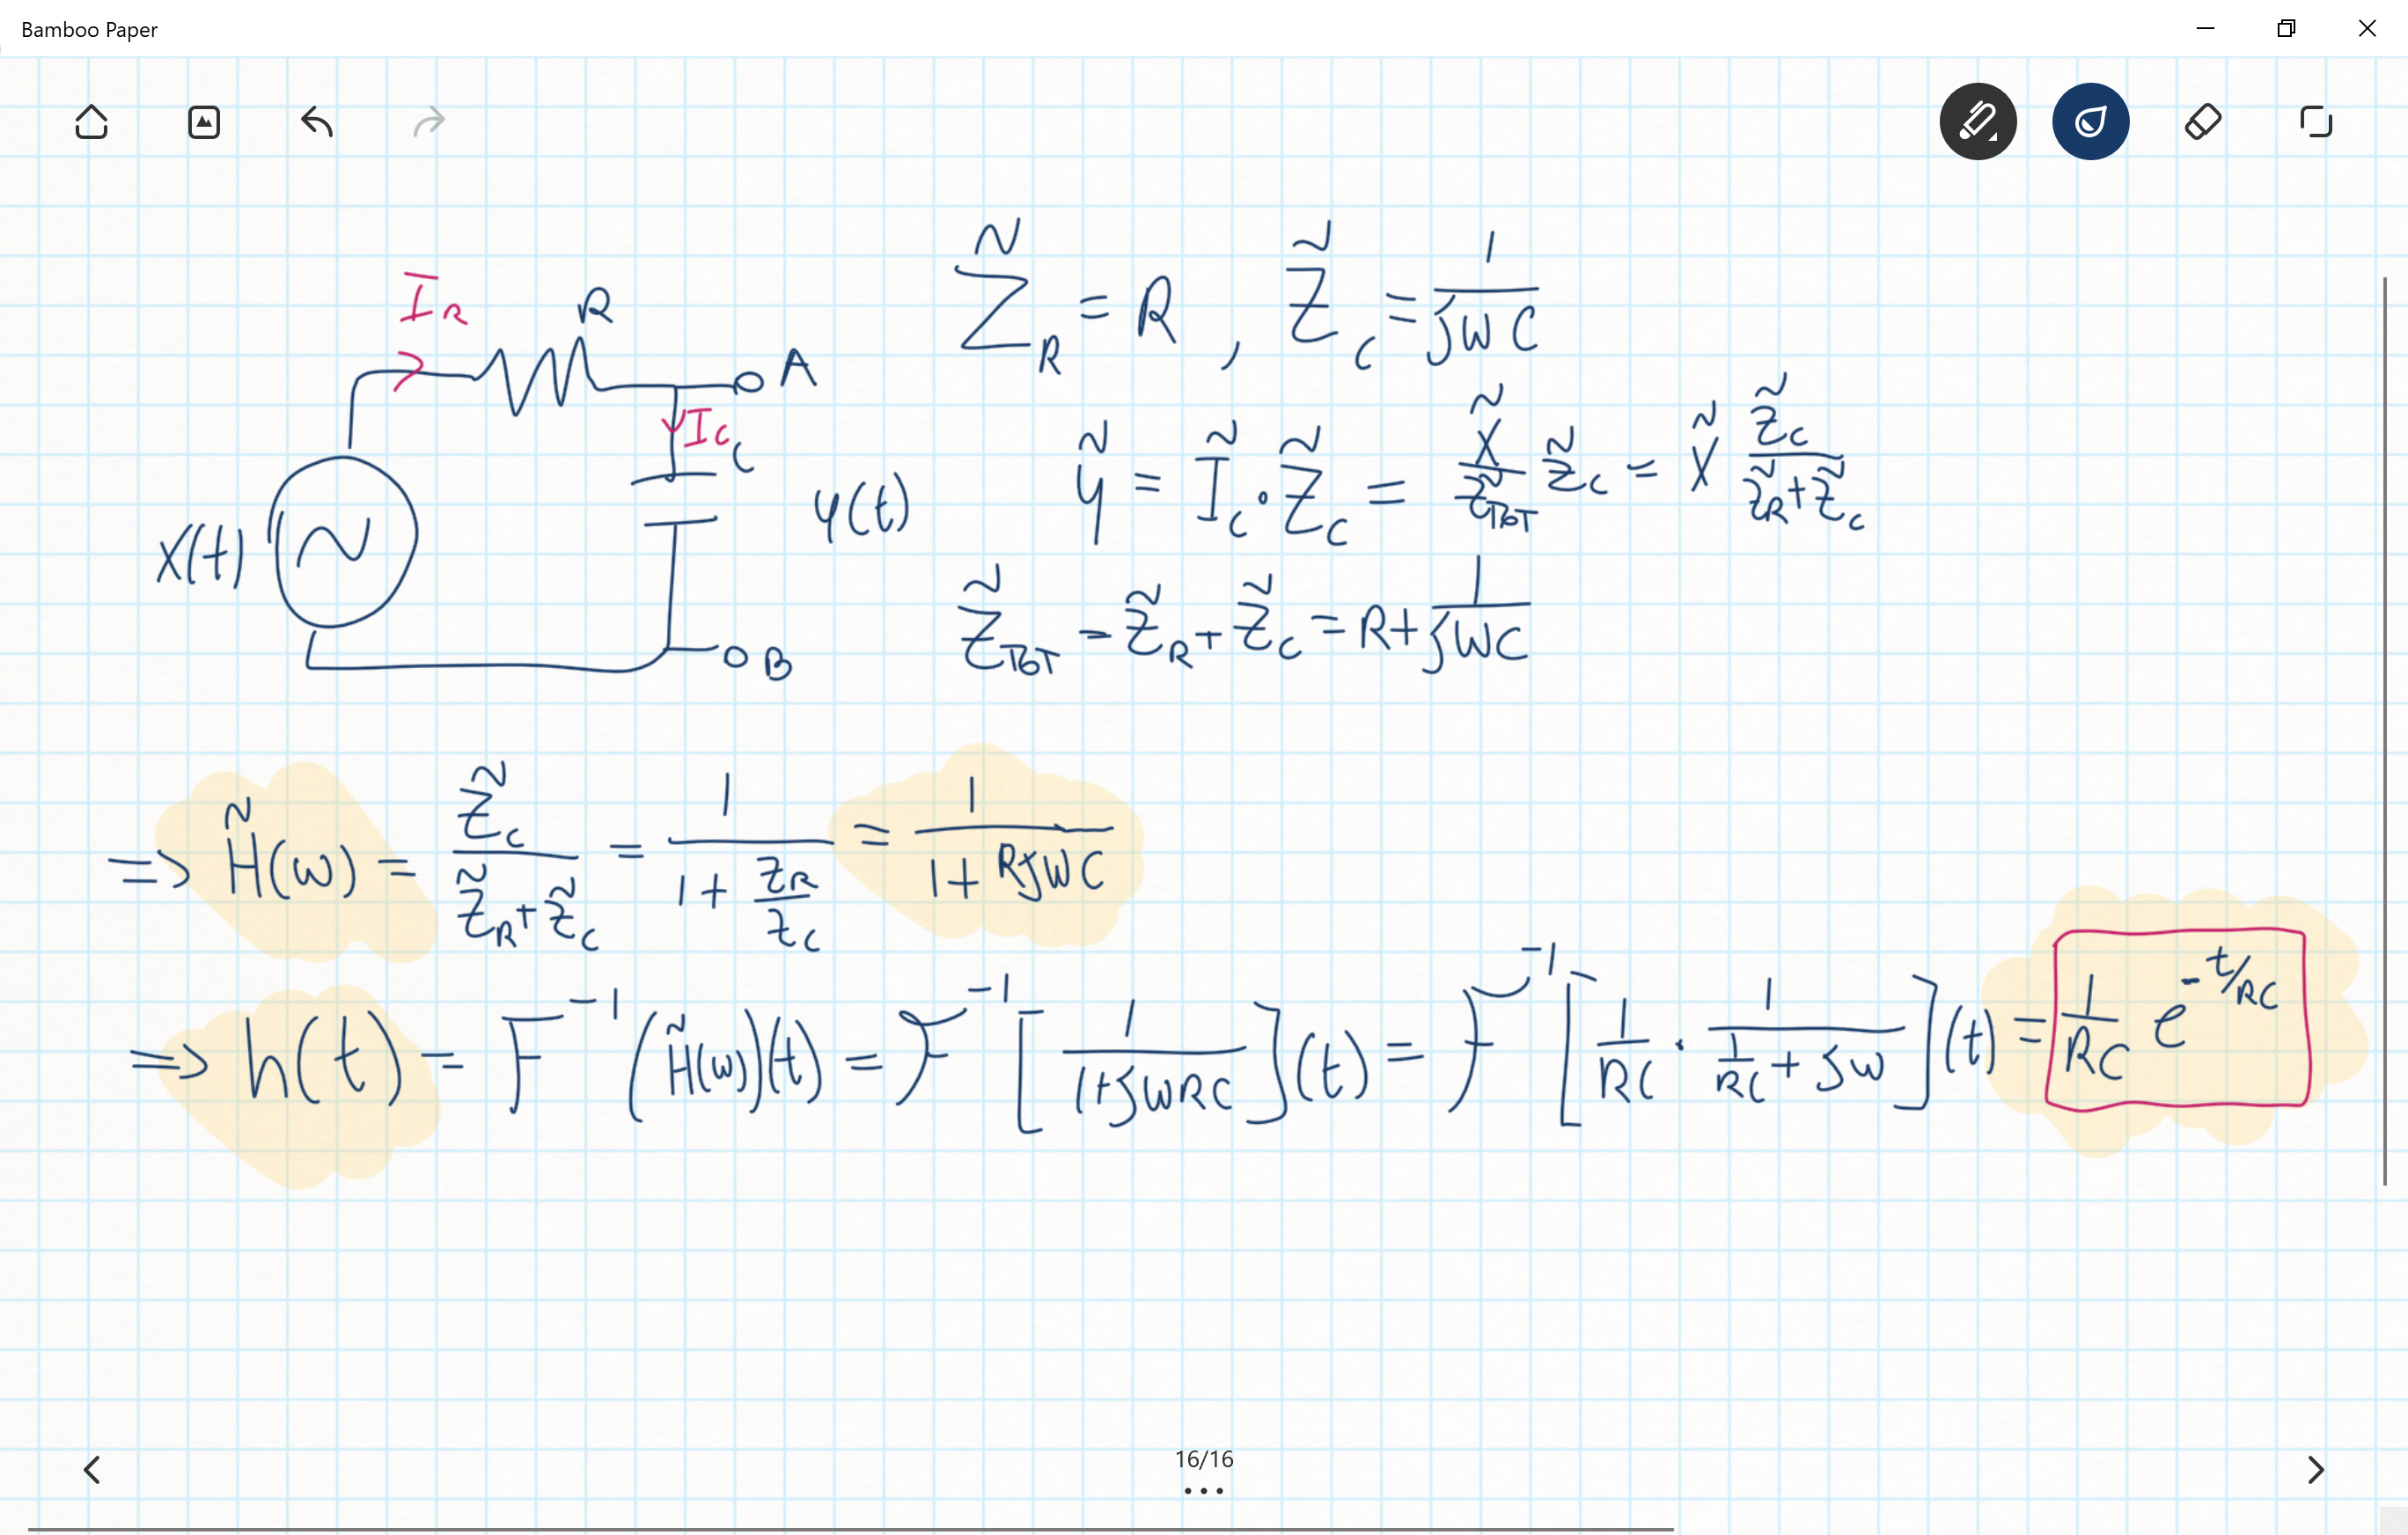 Bamboo Paper
I_R
R
A
I_C
C
X(t)
y(t)
B
Z̃_R = R , Z̃_C = 1/(jωC)
ỹ = Ĩ_C · Z̃_C = X̃/Z̃_TOT Z̃_C = X̃ Z̃_C/(Z̃_R + Z̃_C)
Z̃_TOT = Z̃_R + Z̃_C = R + 1/(jωC)
=> H̃(ω) = Z̃_C/(Z̃_R + Z̃_C) = 1/(1 + Z_R/Z_C) = 1/(1 + RjωC)
=> h(t) = F⁻¹(H̃(ω))(t) = F⁻¹[1/(1+jωRC)](t) = F⁻¹[1/RC · 1/(1/RC + jω)](t) = 1/RC e^(-t/RC)
16/16